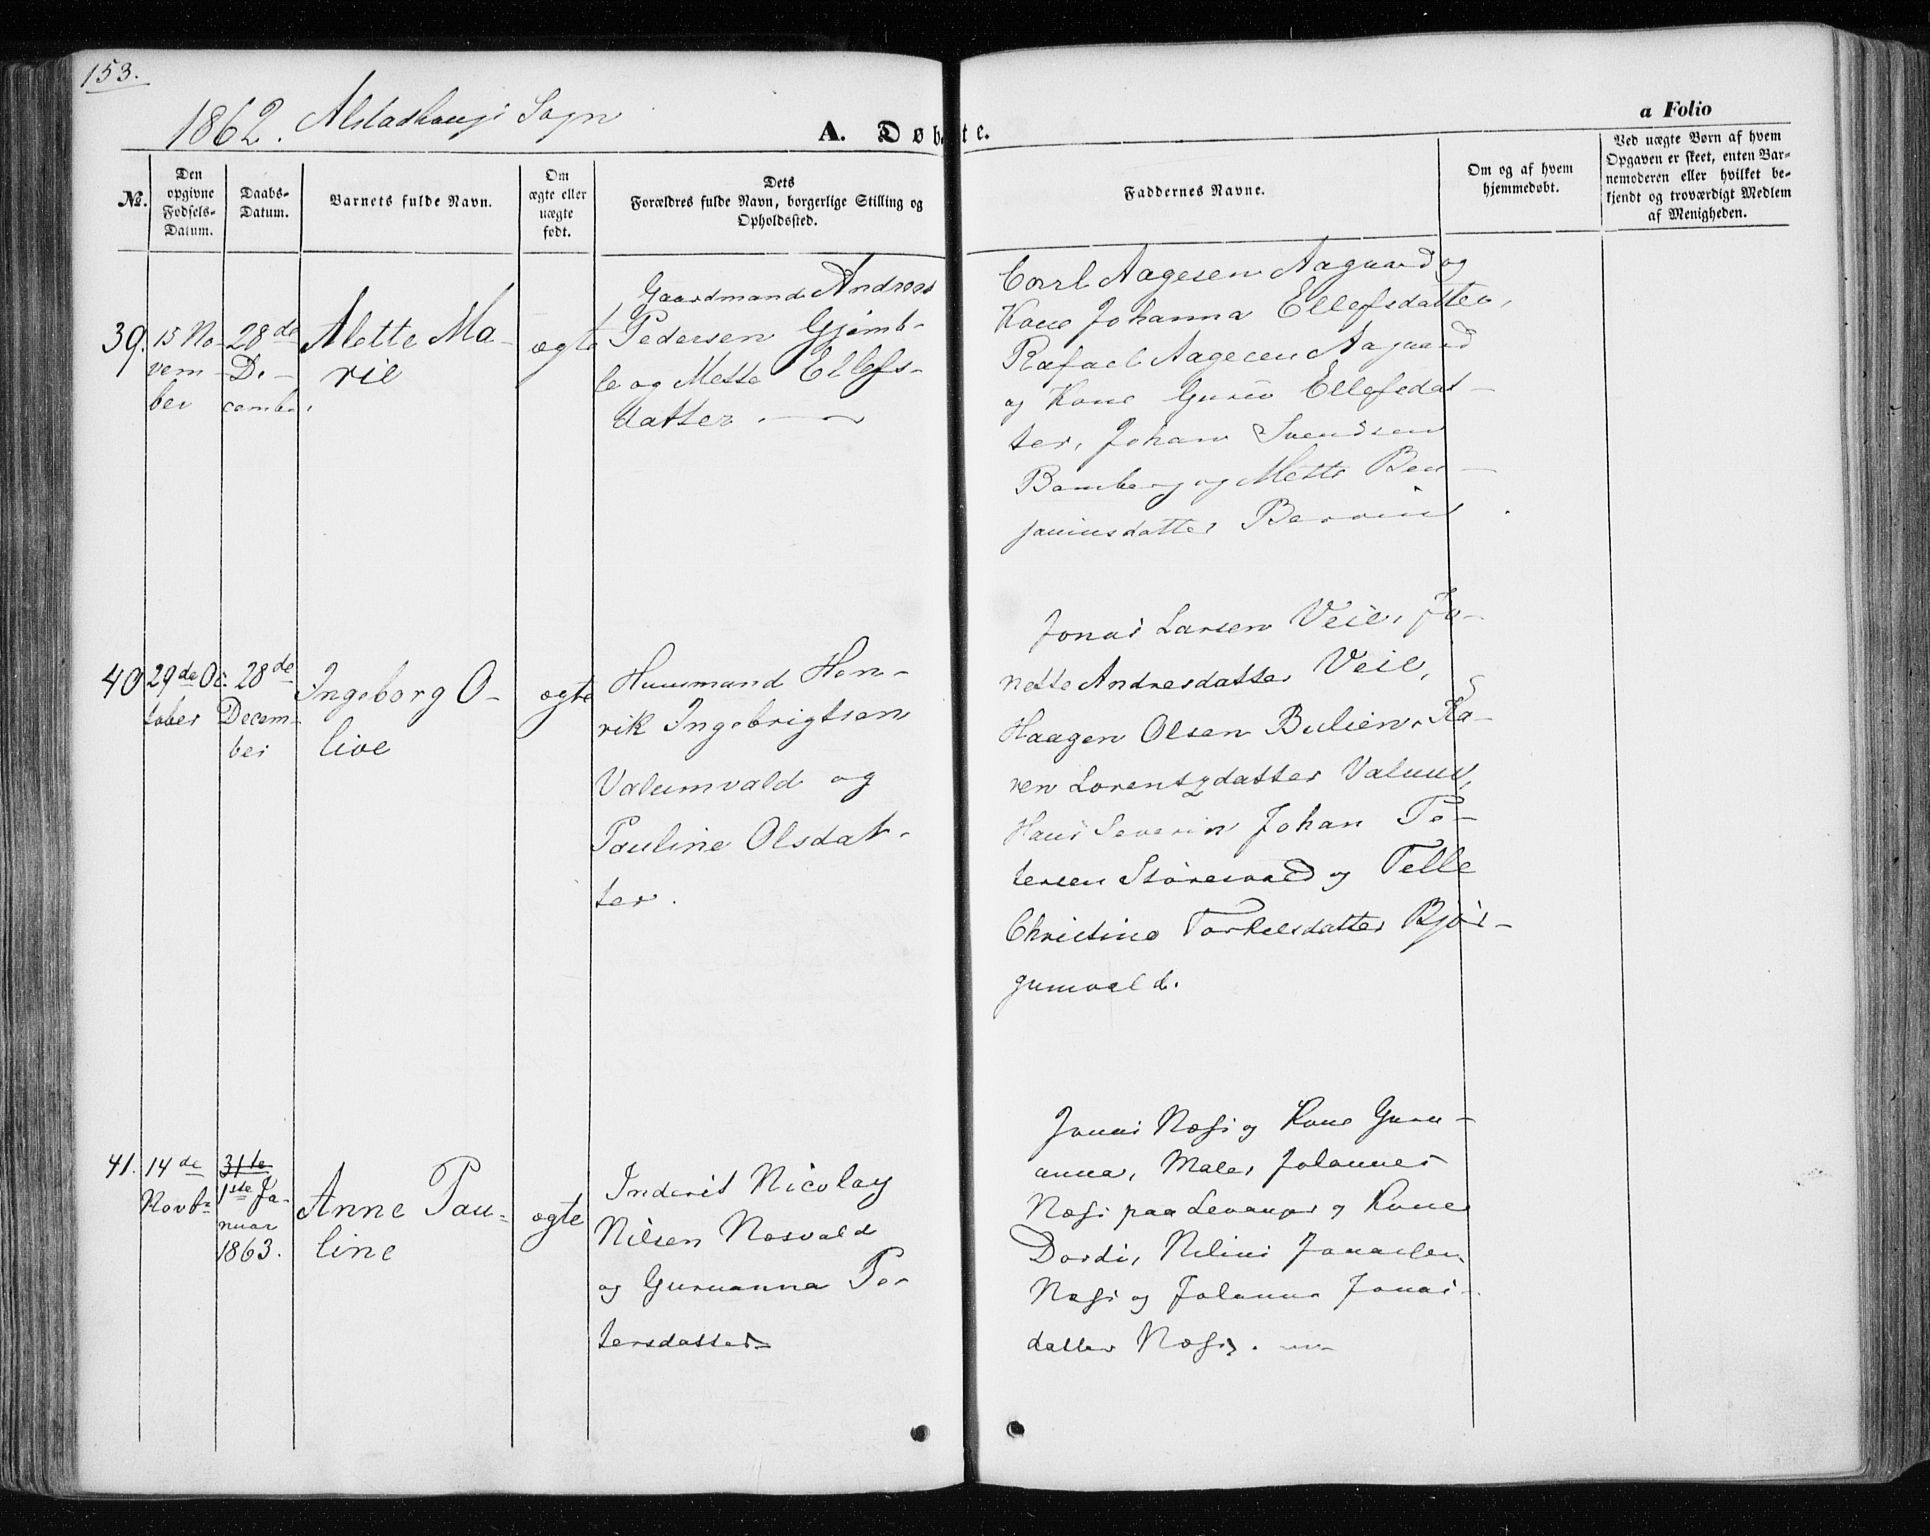 153.
1862. Alstadhaugs Sogn
A. Døbte.
a Folio
No.
Den opgivne Fødsels-Datum.
Daabs-Datum.
Barnets fulde Navn.
Om ægte eller uægte født.
Dets Forældres fulde Navn, borgerlige Stilling og Opholdssted.
Faddernes Navne.
Om og af hvem hjemmedøbt.
Ved uægte Børn af hvem Opgaven er skeet, enten Barnemoderen eller hvilket bekjendt og troværdigt Medlem af Menigheden.
39.
15 No-
vem-
ber
28de
De-
cember
Alette Ma-
rie
ægte
Gaardmand Andreas
Pedersen Gjemb-
le og Mette Ellefs-
datter.
Carl Aagesen Aagaard og
Kone Johanna Ellefsdatter,
Rafael Aagesen Aagaard
og Kone Guru Ellefsdat-
ter, Johan Svendsen
Bamberg og Mette Ben-
jaminsdatter
40
29de Oc-
tober
28de
Decem-
ber
Ingeborg O-
live
ægte
Huusmand Hen-
rik Ingebrigtsen
Valumvald og
Pauline Olsdat-
ter.
Jonas Larsen Veie, Ja-
nette Andresdatter Veie,
Haagen Olsen Bulien, Ka-
ren Lorentzdatter Valum,
Hans Severin Johan Pe-
tersen Størevald og Pelle
Christine Torkelsdatter Bjør-
gumvald.
41.
14de
Novbr
31te
1ste Ja-
nuar
1863.
Anne Pau-
line
ægte
Inderst Nicolay
Nilsen Nesvald
og Guruanna Pe-
tersdatter
Jonas Næss og Kone Guru-
anna, Maler Johannes
Næss paa Levanger og Kone
Dordi, Nilius Jonassen
Næss og Johanna Jonas-
datter Næss.